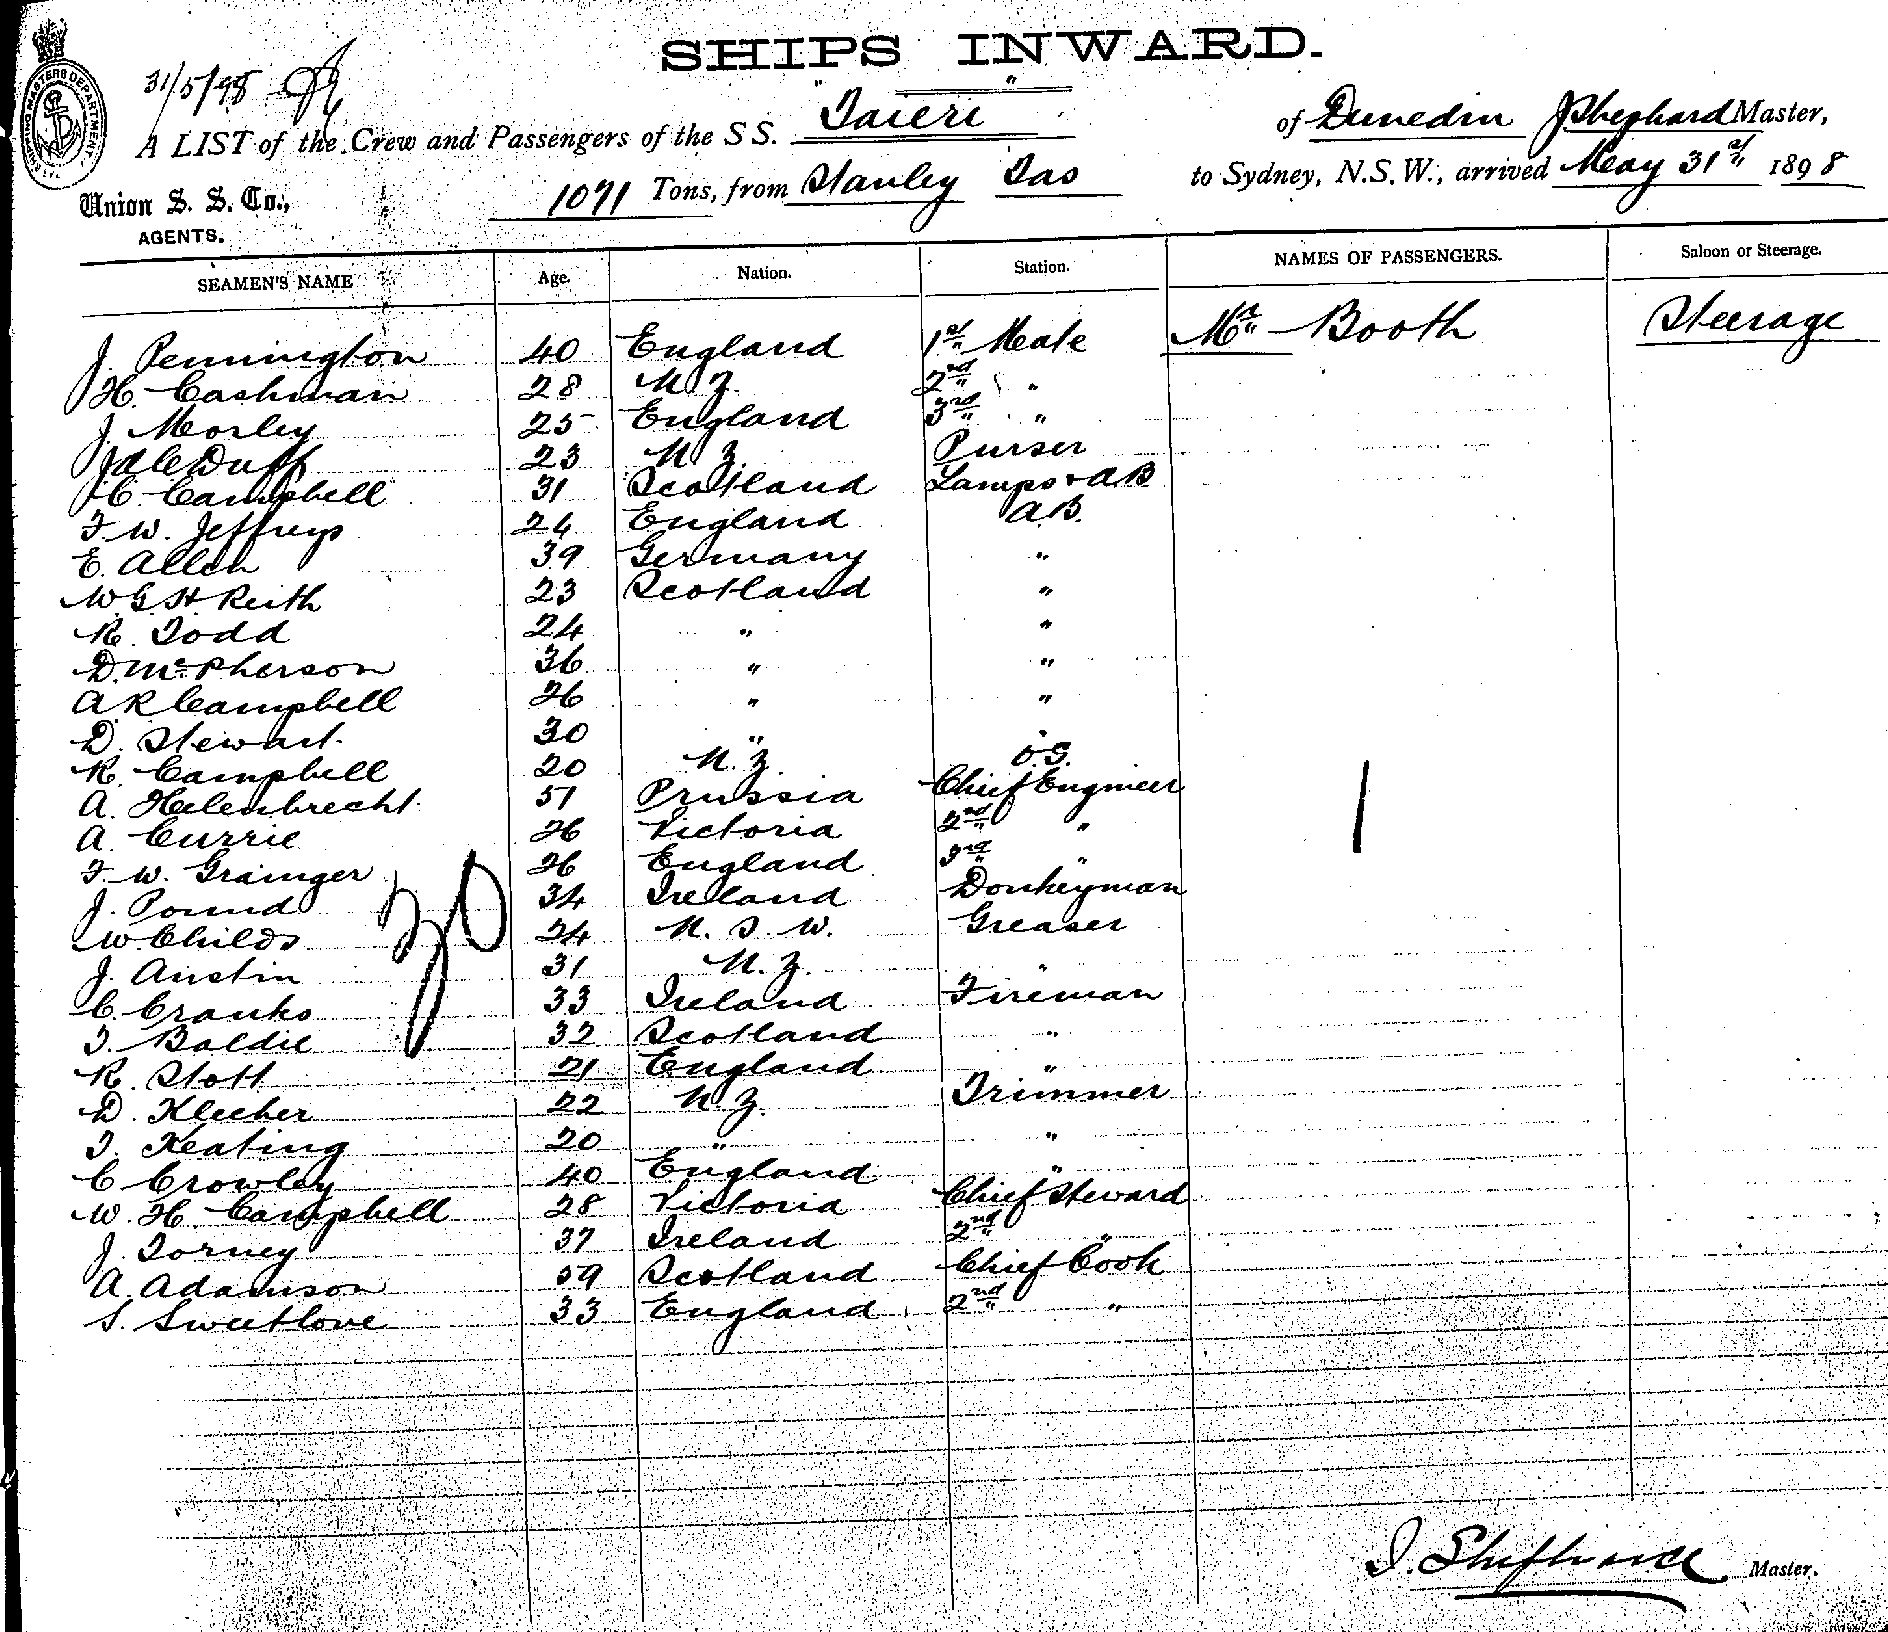 SHIPS INWARD.
31/5/98
SHIPPING MASTERS DEPARTMENT
A LIST of the Crew and Passengers of the SS. "Taieri" of Dunedin J Shephard Master,
Union S. S. Co., AGENTS. 1071 Tons, from Stanley Tas to Sydney, N.S.W., arrived May 31st 1898
SEAMEN'S NAME Age. Nation. Station. NAMES OF PASSENGERS. Saloon or Steerage.
J. Pennington 40 England 1st Mate Mr Booth Steerage
H. Cashman 28 N Z. 2nd "
J. Morley 25 England 3rd "
Duff 23 N Z. Purser
C. Campbell 31 Scotland Lamps & AB
F. W. Jeffreys 24 England A.B.
E. Allen 39 Germany "
W G. H. Reith 23 Scotland "
R. Todd 24 " "
D. McPherson 36 " "
A R Campbell 26 " "
D. Stewart 30 " "
R. Campbell 20 N. Z. O.S.
A. Helenbrecht 51 Prussia Chief Engineer
A. Currie 26 Victoria 2nd "
F. W. Grainger 26 England 3rd "
J. Pound 34 Ireland Donkeyman
W. Childs 24 N. S. W. Greaser
J. Austin 31 N. Z. "
C. Cranks 33 Ireland Fireman
T. Baldie 32 Scotland "
R. Stott 21 England "
D. Kleeber 22 N. Z. Trimmer
T. Keating 20 " "
C Crowley 40 England "
W. H. Campbell 28 Victoria Chief Steward
J. Torney 37 Ireland 2nd "
A. Adamson 59 Scotland Chief Cook
S. Sweetlove 33 England 2nd "
30
1
J. Shephard Master.